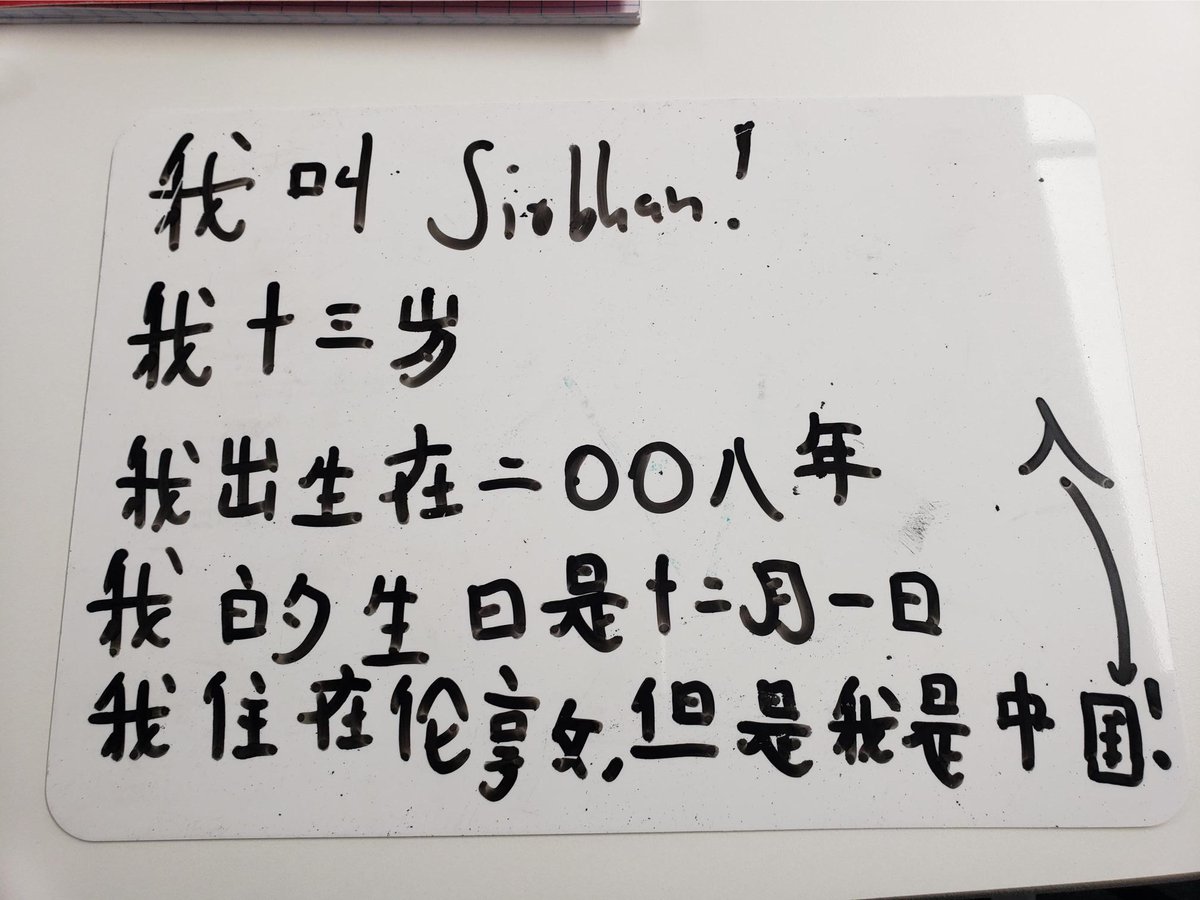 我叫 Siobhan!
我十三岁
我出生在二〇〇八年
我的生日是十二月一日
我住在伦敦,但是我是中国人!